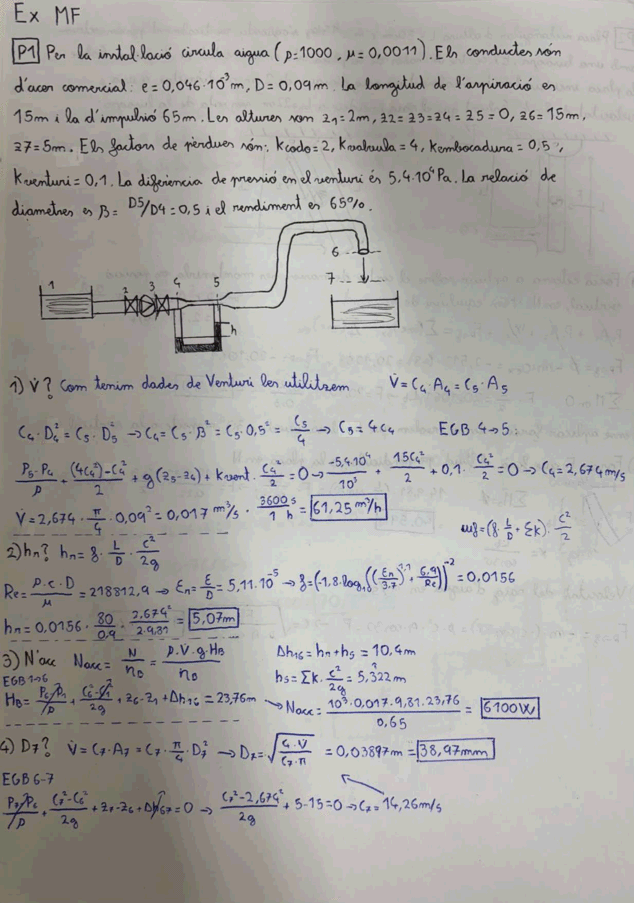 Ex MF
P1 Per la instal·lació circula aigua (ρ=1000, μ=0,0011). Els conductes són
d'acer comercial: e=0,046·10³m, D=0,09m. La longitud de l'aspiració es
15m i la d'impulsió 65m. Les altures son z1=2m, z2=z3=z4=z5=0, z6=15m,
z7=5m. Els factors de pèrdues són: Kcodo=2, Kvalvula=4, Kembocadura=0,5,
Kventuri=0,1. La diferencia de pressió en el venturi és 5,4·10⁴Pa. La relació de
diametres es β= D5/D4=0,5 i el rendiment es 65%.
1 2 3 4 5 6 7 h
1) V̇? Com tenim dades de Venturi les utilitzem V̇=C4·A4=C5·A5
C4·D4²=C5·D5² → C4=C5·β²=C5·0,5²=C5/4 → C5=4C4 EGB 4→5:
(P5-P4)/ρ + ((4C4)²-C4²)/2 + g(z5-z4) + Kvent·C4²/2=0 → -5,4·10⁴/10³ + 15C4²/2 + 0,1·C4²/2=0 → C4=2,674m/s
V̇=2,674·π/4·0,09²=0,017m³/s·3600s/1h=61,25m³/h
2) hr? hr=f·L/D·c²/2g
wf=(f·L/D+ΣK)·c²/2
Re=ρ·c·D/μ=218812,9 → Er=ε/D=5,11·10⁻⁵ → f=(-1,8·log10((Er/3,7)^1,1+6,9/Re))⁻²=0,0156
hr=0,0156·80/0,9·2,674²/2·9,81=5,07m
3) Nacc Nacc=N/η0=ρ·V̇·g·HB/η0
Δh16=hr+hs=10,4m
hs=ΣK·c²/2g=5,322m
EGB1→6
HB=(P6-P1)/ρ+(C6²-C1²)/2g+z6-z1+Δh16=23,76m → Nacc=10³·0,017·9,81·23,76/0,65=6100W
4) D7? V̇=C7·A7=C7·π/4·D7² → D7=√(4·V̇/C7·π)=0,03897m=38,97mm
EGB 6-7
(P7-P6)/ρ+(C7²-C6²)/2g+z7-z6+Δh67=0 → (C7²-2,674²)/2g+5-15=0 → C7=14,26m/s